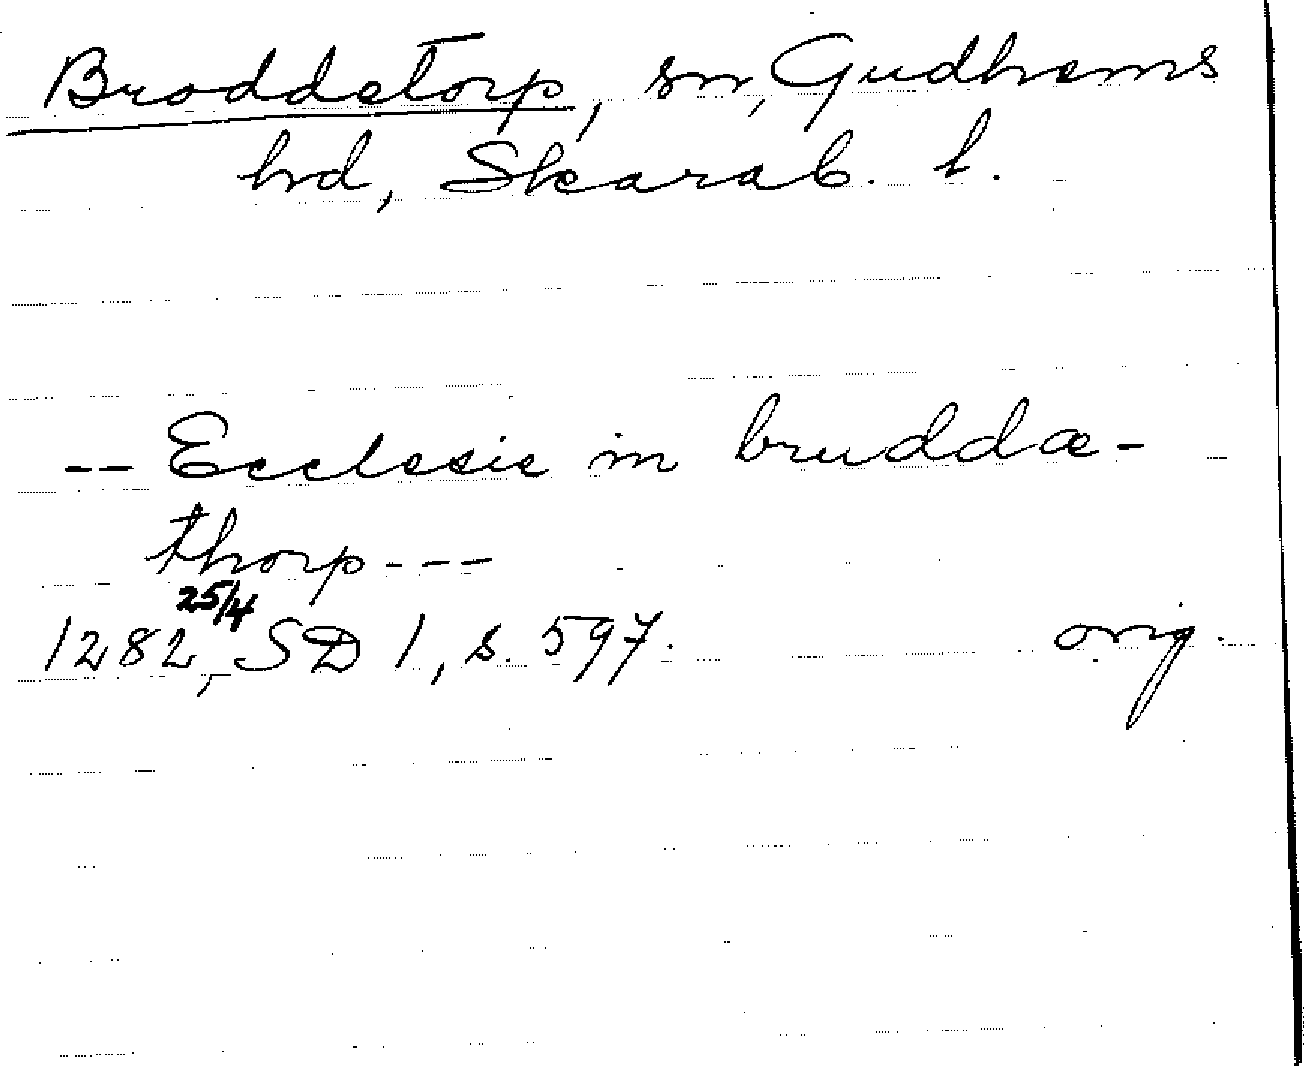 Broddetorp, sn, Gudhems
hd, Skarab. l.
-- Ecclesie in bruddæ-
thorp ---
25/4
1282, SD 1, s. 597. orig.